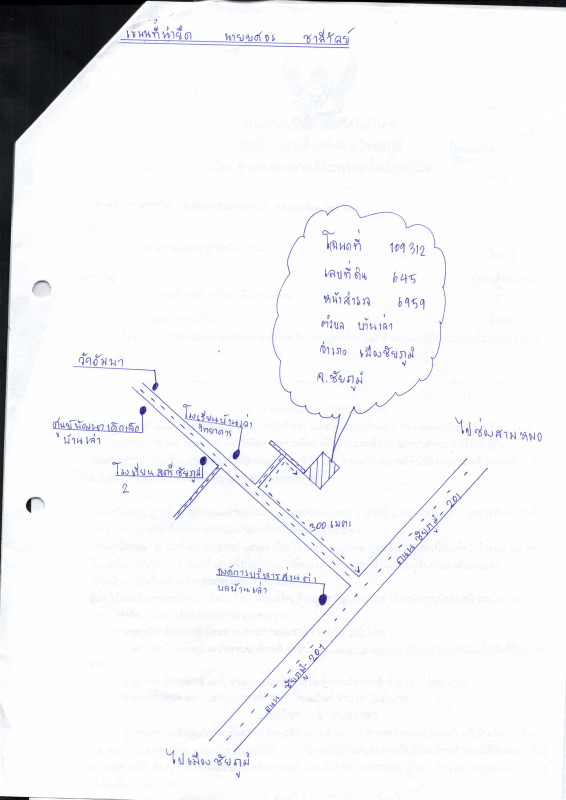 นายยศธร ชาลีวัลย์
โฉนดที่ 109312
เลขที่ดิน 645
หน้าสำรวจ 6959
ตำบล บ้านเล่า
อำเภอ เมืองชัยภูมิ
จ.ชัยภูมิ
วัดอัมพา
โรงเรียนบ้านเล่า
วิทยาคาร
ศูนย์พัฒนาเด็กเล็ก
บ้านเล่า
ไปช่องสามหมอ
โรงเรียนสตรีชัยภูมิ
2
300 เมตร
ถนน ชัยภูมิ - 201
องค์การบริหารส่วนตำ
บลบ้านเล่า
ถนน ชัยภูมิ - 201
ไปเมืองชัยภูมิ